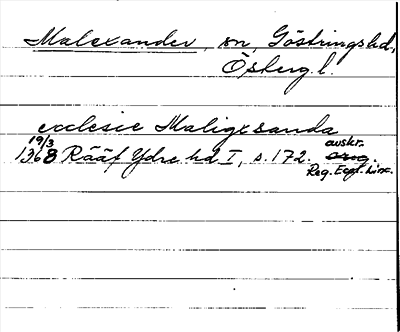 Malexander, sn, Göstringshd,
Östergl.
ecclesie Maligxsanda
19/3
1368 Rääf Ydre hd I, s. 172. avskr.
orig.
Reg. Eccl. Linc.